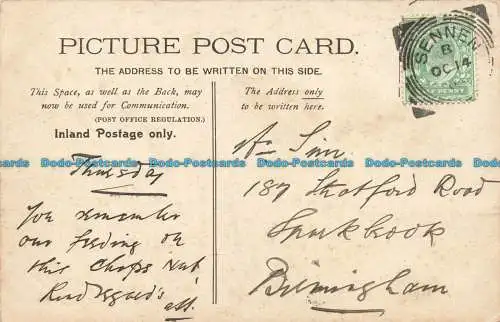 PICTURE POST CARD.
THE ADDRESS TO BE WRITTEN ON THIS SIDE.
This Space, as well as the Back, may
now be used for Communication.
(POST OFFICE REGULATION.)
Inland Postage only.
The Address only
to be written here.
SENNEN
B
OC 14
PENNY
Dodo-Postcards Dodo-Postcards Dodo-Postcards Dodo-Postcards Dodo-Postcards
Thursday
You remember
our feeding on
this
Kind Regards
187 Stratford Road
Sparkbrook
Birmingham